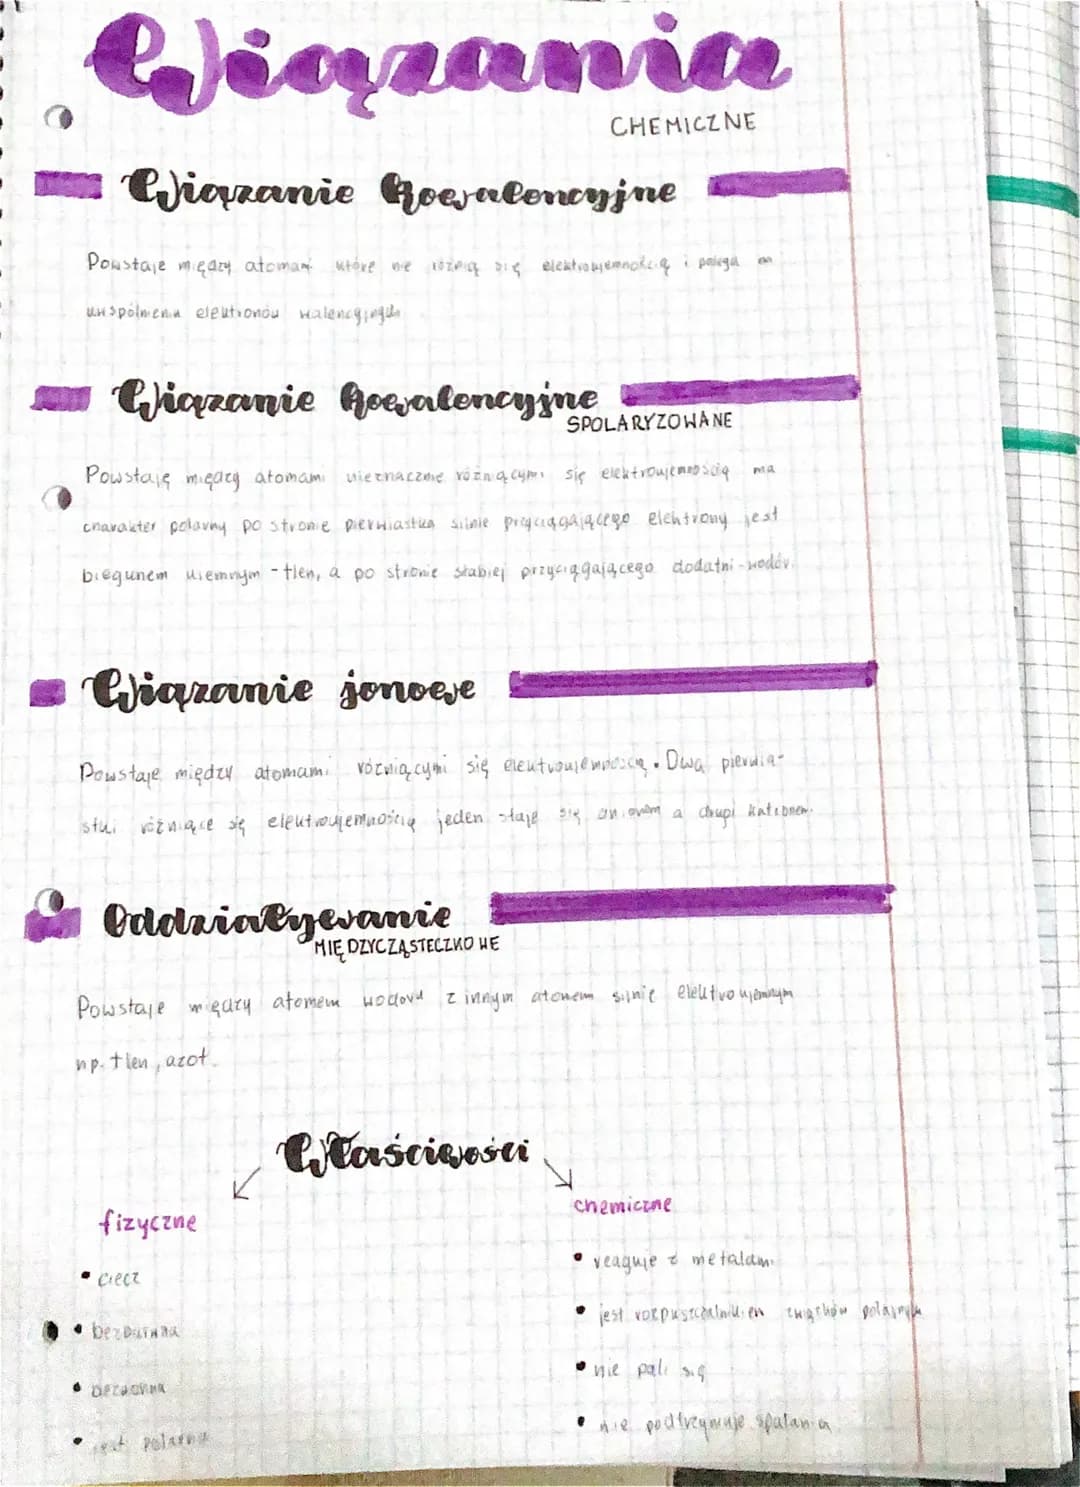 Wiązania
CHEMICZNE
Wiązanie kowalencyjne
Powstaje między atomami które nie różnią się elektroujemnością i polega na
uwspólnieniu elektronów walencyjnych
Wiązanie kowalencyjne
SPOLARYZOWANE
Powstaję między atomami nieznacznie różniącymi się elektroujemnością ma
charakter polarny po stronie pierwiastka silnie przyciągającego elektrony jest
biegunem ujemnym - tlen, a po stronie słabiej przyciągającego dodatni - wodór.
Wiązanie jonowe
Powstaje między atomami różniącymi się elektroujemnością. Dwa pierwia-
stki różniące się elektroujemnością jeden staje się anionem a drugi kationem.
Oddziaływanie
MIĘDZYCZĄSTECZKOWE
Powstaje między atomem wodoru z innym atomem silnie elektroujemnym
np. tlen, azot.
Właściwości
fizyczne
chemiczne
• ciecz
• reaguje z metalami
• bezbarwna
• jest rozpuszczalnikiem związków polarnych
• bezwonna
• nie pali się
• jest polarna
• nie podtrzymuje spalania